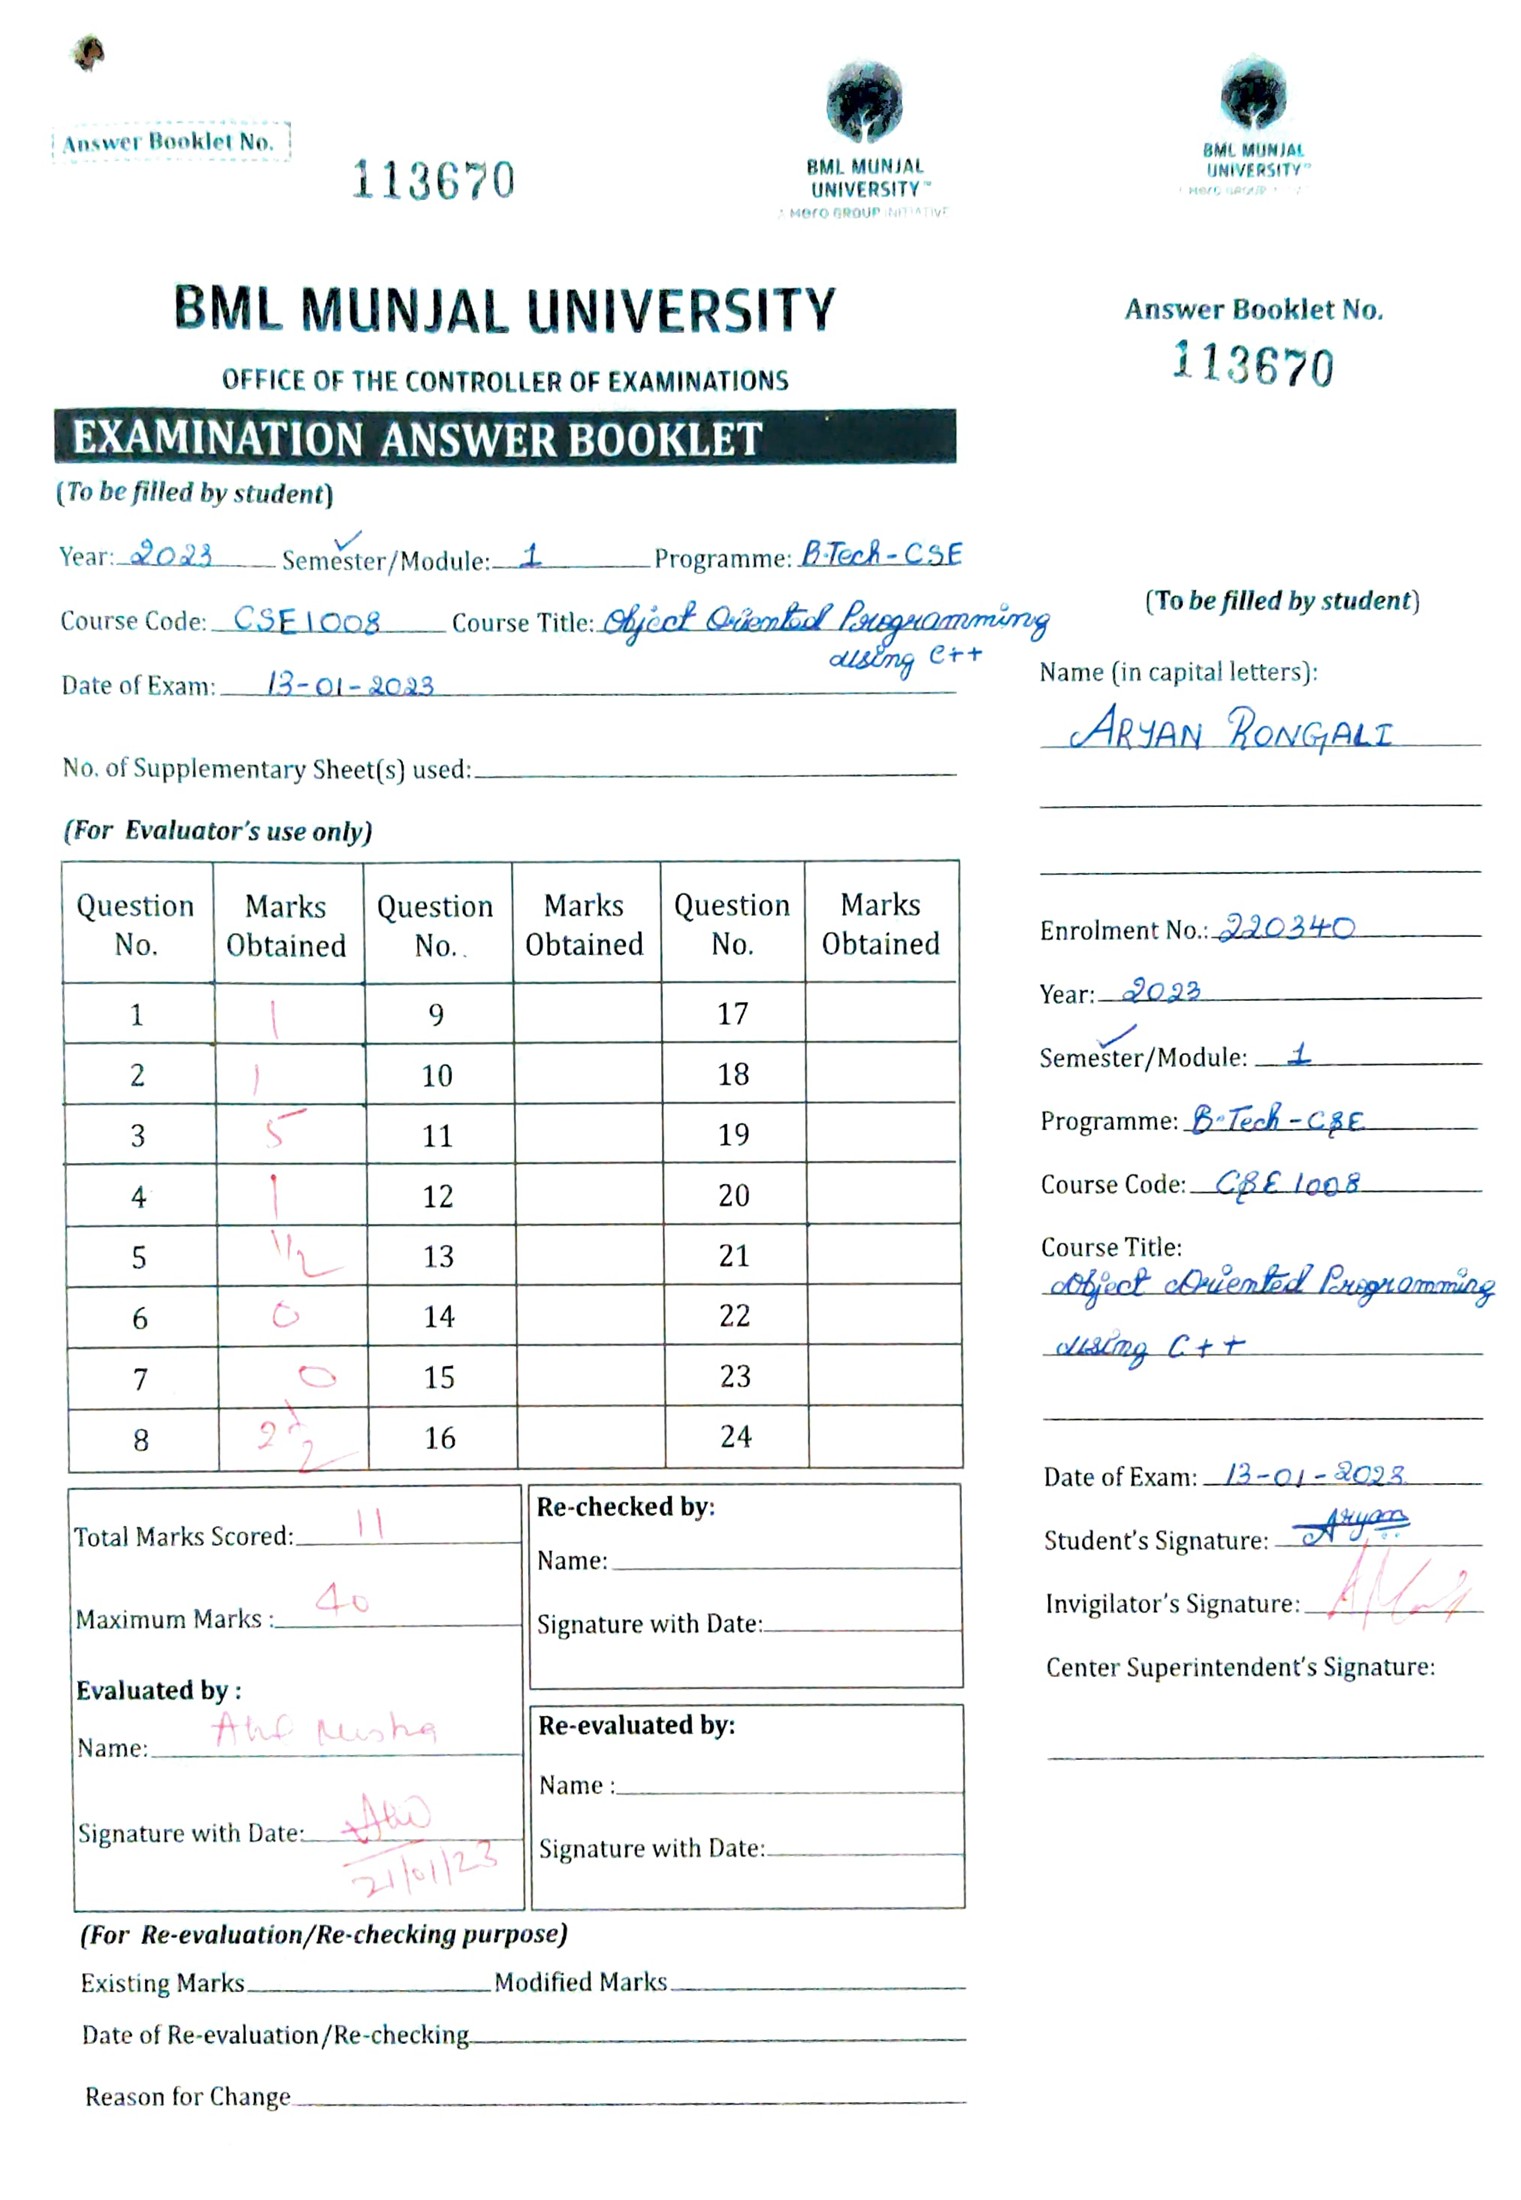 Answer Booklet No.
113670
BML MUNJAL
UNIVERSITY™
A Hero GROUP INITIATIVE
BML MUNJAL
UNIVERSITY™
BML MUNJAL UNIVERSITY
OFFICE OF THE CONTROLLER OF EXAMINATIONS
EXAMINATION ANSWER BOOKLET
(To be filled by student)
Year: 2023 Semester/Module: 1 Programme: B.Tech-CSE
Course Code: CSE1008 Course Title: Object Oriented Programming
using C++
Date of Exam: 13-01-2023
No. of Supplementary Sheet(s) used:
(For Evaluator's use only)
Question No. Marks Obtained Question No.. Marks Obtained Question No. Marks Obtained
1 1 9 17
2 1 10 18
3 5 11 19
4 1 12 20
5 1/2 13 21
6 0 14 22
7 0 15 23
8 2 1/2 16 24
Total Marks Scored: 11
Maximum Marks : 40
Evaluated by :
Name:
Signature with Date:
21/01/23
Re-checked by:
Name:
Signature with Date:
Re-evaluated by:
Name :
Signature with Date:
(For Re-evaluation/Re-checking purpose)
Existing Marks Modified Marks
Date of Re-evaluation/Re-checking
Reason for Change
Answer Booklet No.
113670
(To be filled by student)
Name (in capital letters):
ARYAN RONGALI
Enrolment No.: 220340
Year: 2023
Semester/Module: 1
Programme: B.Tech-CSE
Course Code: CSE1008
Course Title:
Object Oriented Programming
using C++
Date of Exam: 13-01-2023
Student's Signature: Aryan
Invigilator's Signature:
Center Superintendent's Signature: